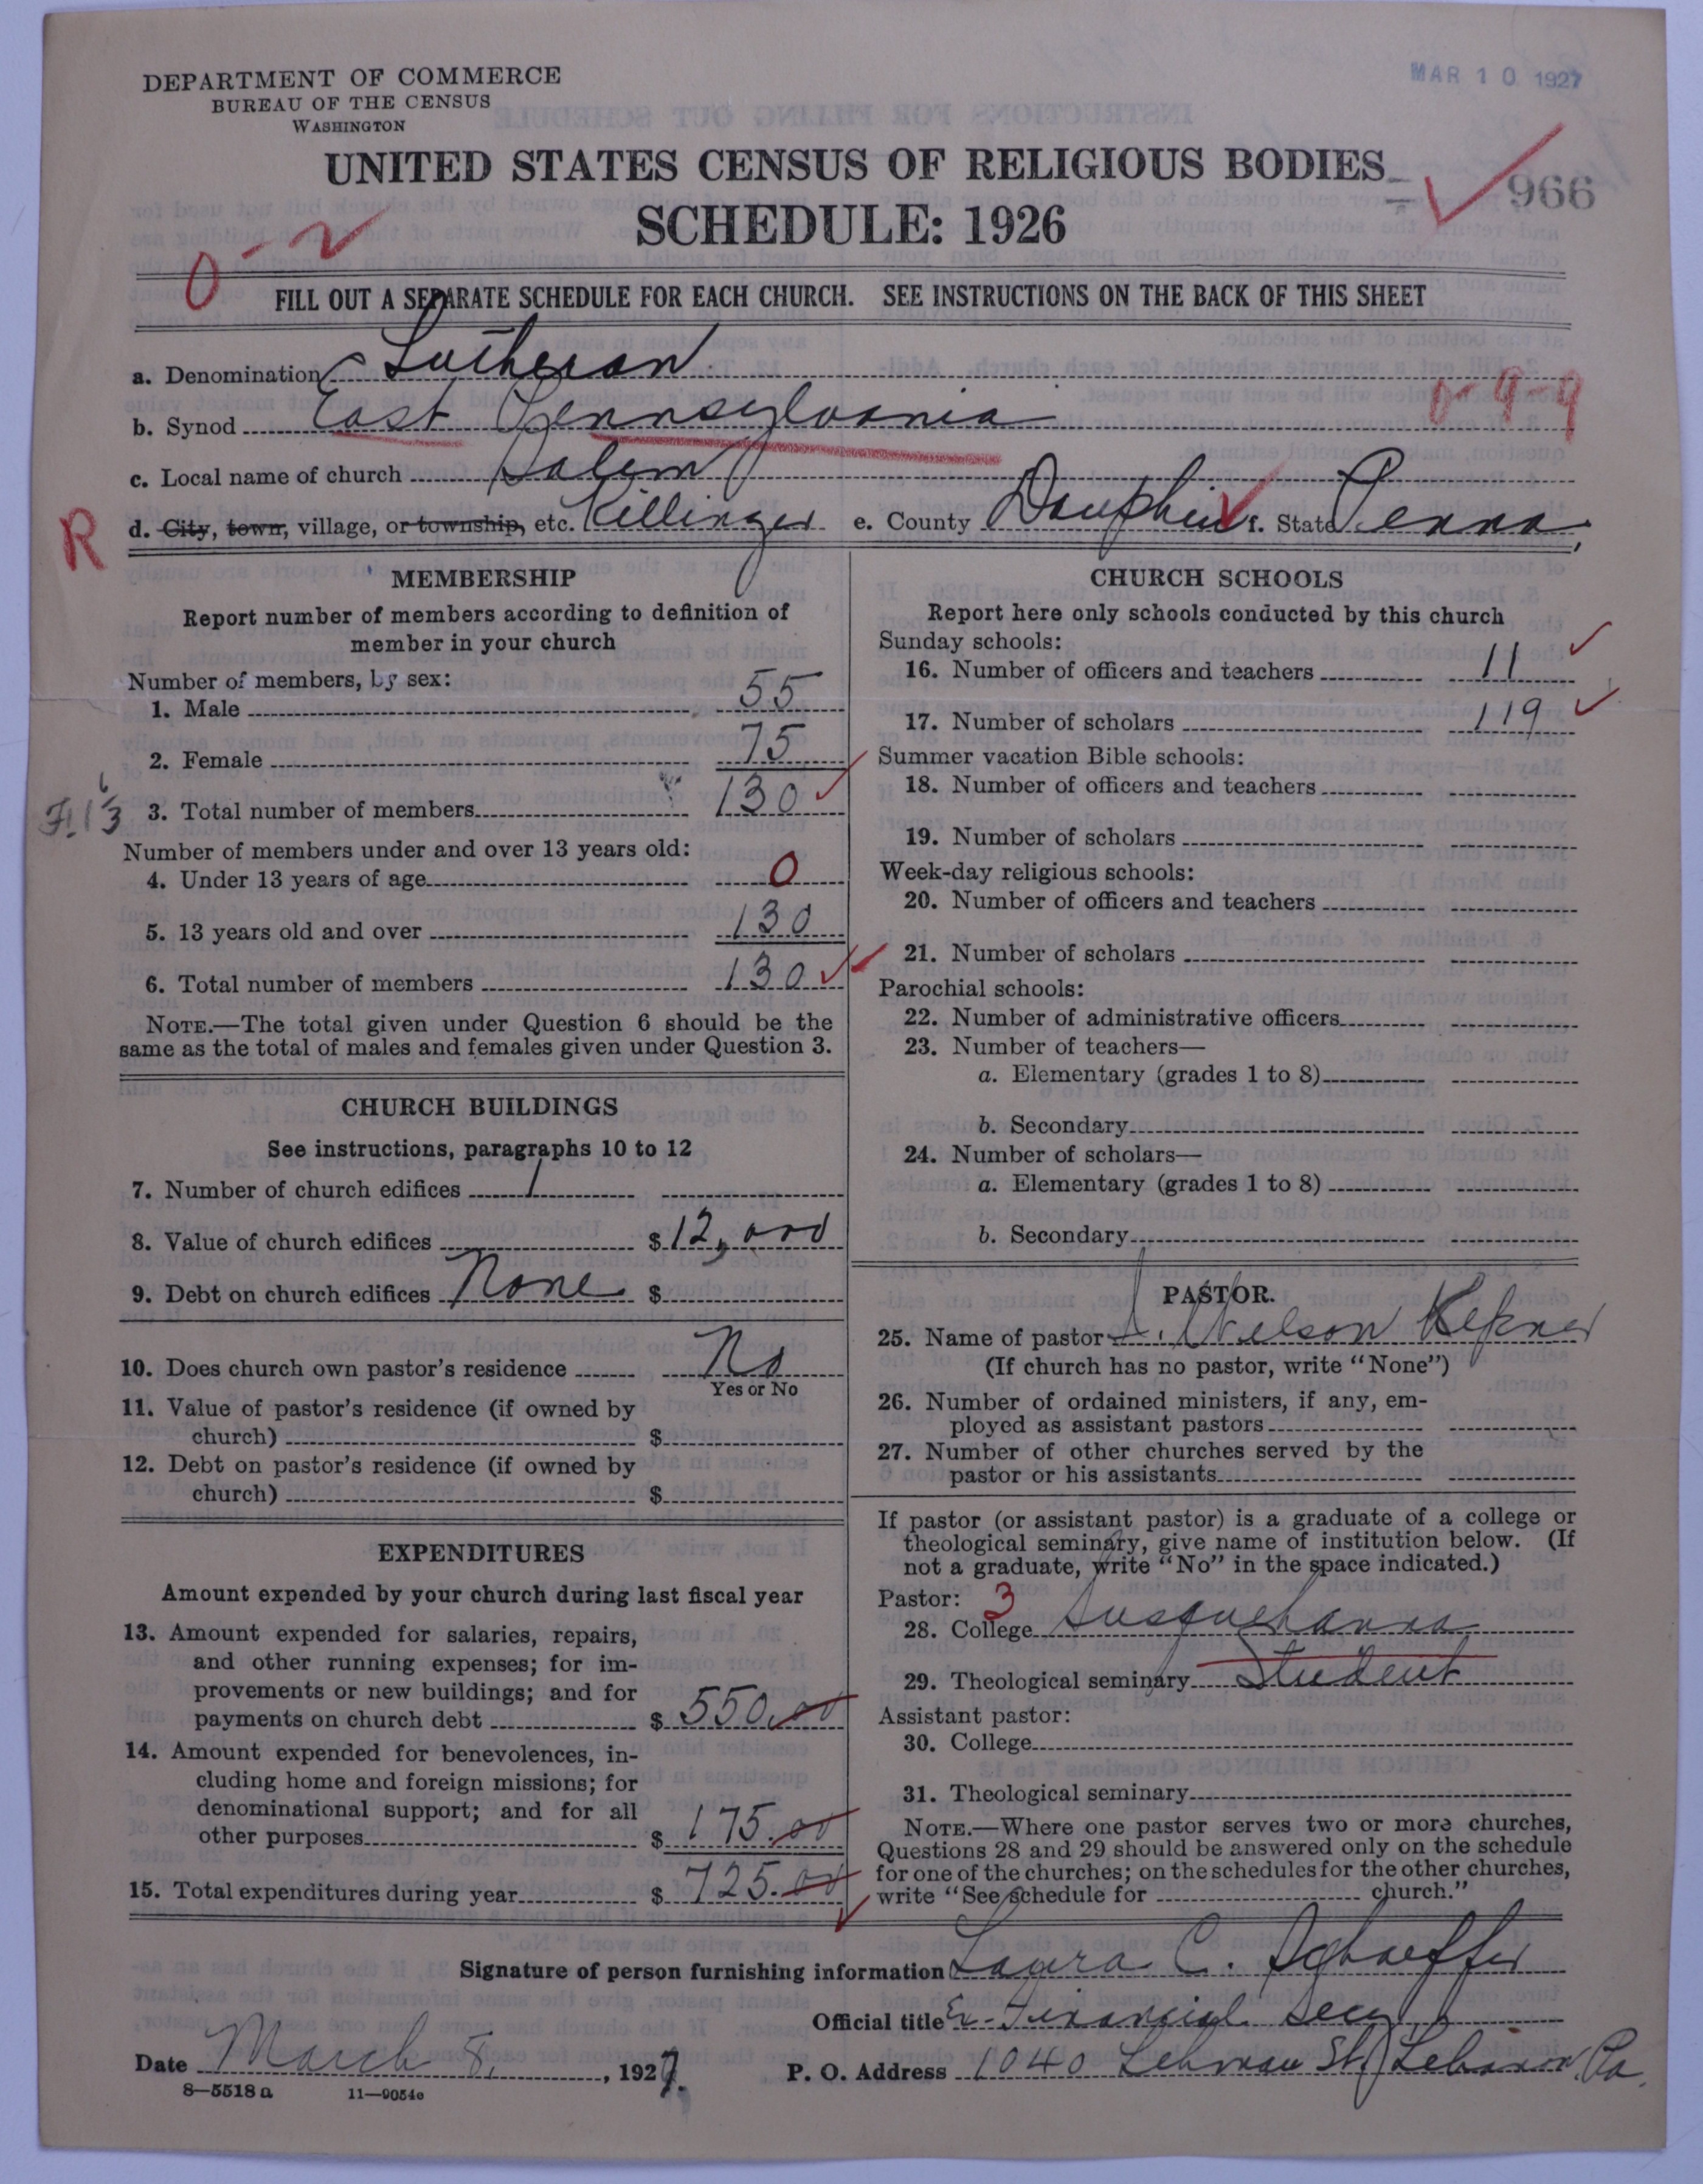 DEPARTMENT OF COMMERCE
BUREAU OF THE CENSUS
WASHINGTON
MAR 10 1927
UNITED STATES CENSUS OF RELIGIOUS BODIES
966
SCHEDULE: 1926
0-2
FILL OUT A SEPARATE SCHEDULE FOR EACH CHURCH. SEE INSTRUCTIONS ON THE BACK OF THIS SHEET
a. Denomination Lutheran
0-9-9
b. Synod East Pennsylvania
c. Local name of church Salem
R
d. City, town, village, or township, etc. Killinger e. County Dauphin f. State Penna.
MEMBERSHIP
Report number of members according to definition of
member in your church
Number of members, by sex:
1. Male 55
2. Female 75
3. Total number of members 130
Number of members under and over 13 years old:
4. Under 13 years of age 0
5. 13 years old and over 130
6. Total number of members 130
NOTE.—The total given under Question 6 should be the
same as the total of males and females given under Question 3.
CHURCH BUILDINGS
See instructions, paragraphs 10 to 12
7. Number of church edifices 1
8. Value of church edifices $ 12,000
9. Debt on church edifices None $
10. Does church own pastor's residence No
Yes or No
11. Value of pastor's residence (if owned by
church) $
12. Debt on pastor's residence (if owned by
church) $
EXPENDITURES
Amount expended by your church during last fiscal year
13. Amount expended for salaries, repairs,
and other running expenses; for im-
provements or new buildings; and for
payments on church debt $ 550.00
14. Amount expended for benevolences, in-
cluding home and foreign missions; for
denominational support; and for all
other purposes $ 175.00
15. Total expenditures during year $ 725.00
CHURCH SCHOOLS
Report here only schools conducted by this church
Sunday schools:
16. Number of officers and teachers 11
17. Number of scholars 119
Summer vacation Bible schools:
18. Number of officers and teachers
19. Number of scholars
Week-day religious schools:
20. Number of officers and teachers
21. Number of scholars
Parochial schools:
22. Number of administrative officers
23. Number of teachers—
a. Elementary (grades 1 to 8)
b. Secondary
24. Number of scholars—
a. Elementary (grades 1 to 8)
b. Secondary
PASTOR.
25. Name of pastor Wilson Kepner
(If church has no pastor, write "None")
26. Number of ordained ministers, if any, em-
ployed as assistant pastors
27. Number of other churches served by the
pastor or his assistants
If pastor (or assistant pastor) is a graduate of a college or
theological seminary, give name of institution below. (If
not a graduate, write "No" in the space indicated.)
Pastor: 3
28. College Susquehanna
29. Theological seminary Student
Assistant pastor:
30. College
31. Theological seminary
NOTE.—Where one pastor serves two or more churches,
Questions 28 and 29 should be answered only on the schedule
for one of the churches; on the schedules for the other churches,
write "See schedule for church."
Signature of person furnishing information Laura C. Schaeffer
Official title Ex-Financial Secy.
Date March 8, 1927. P. O. Address 1040 Lehman St., Lebanon, Pa.
8—5518 a 11—9054c